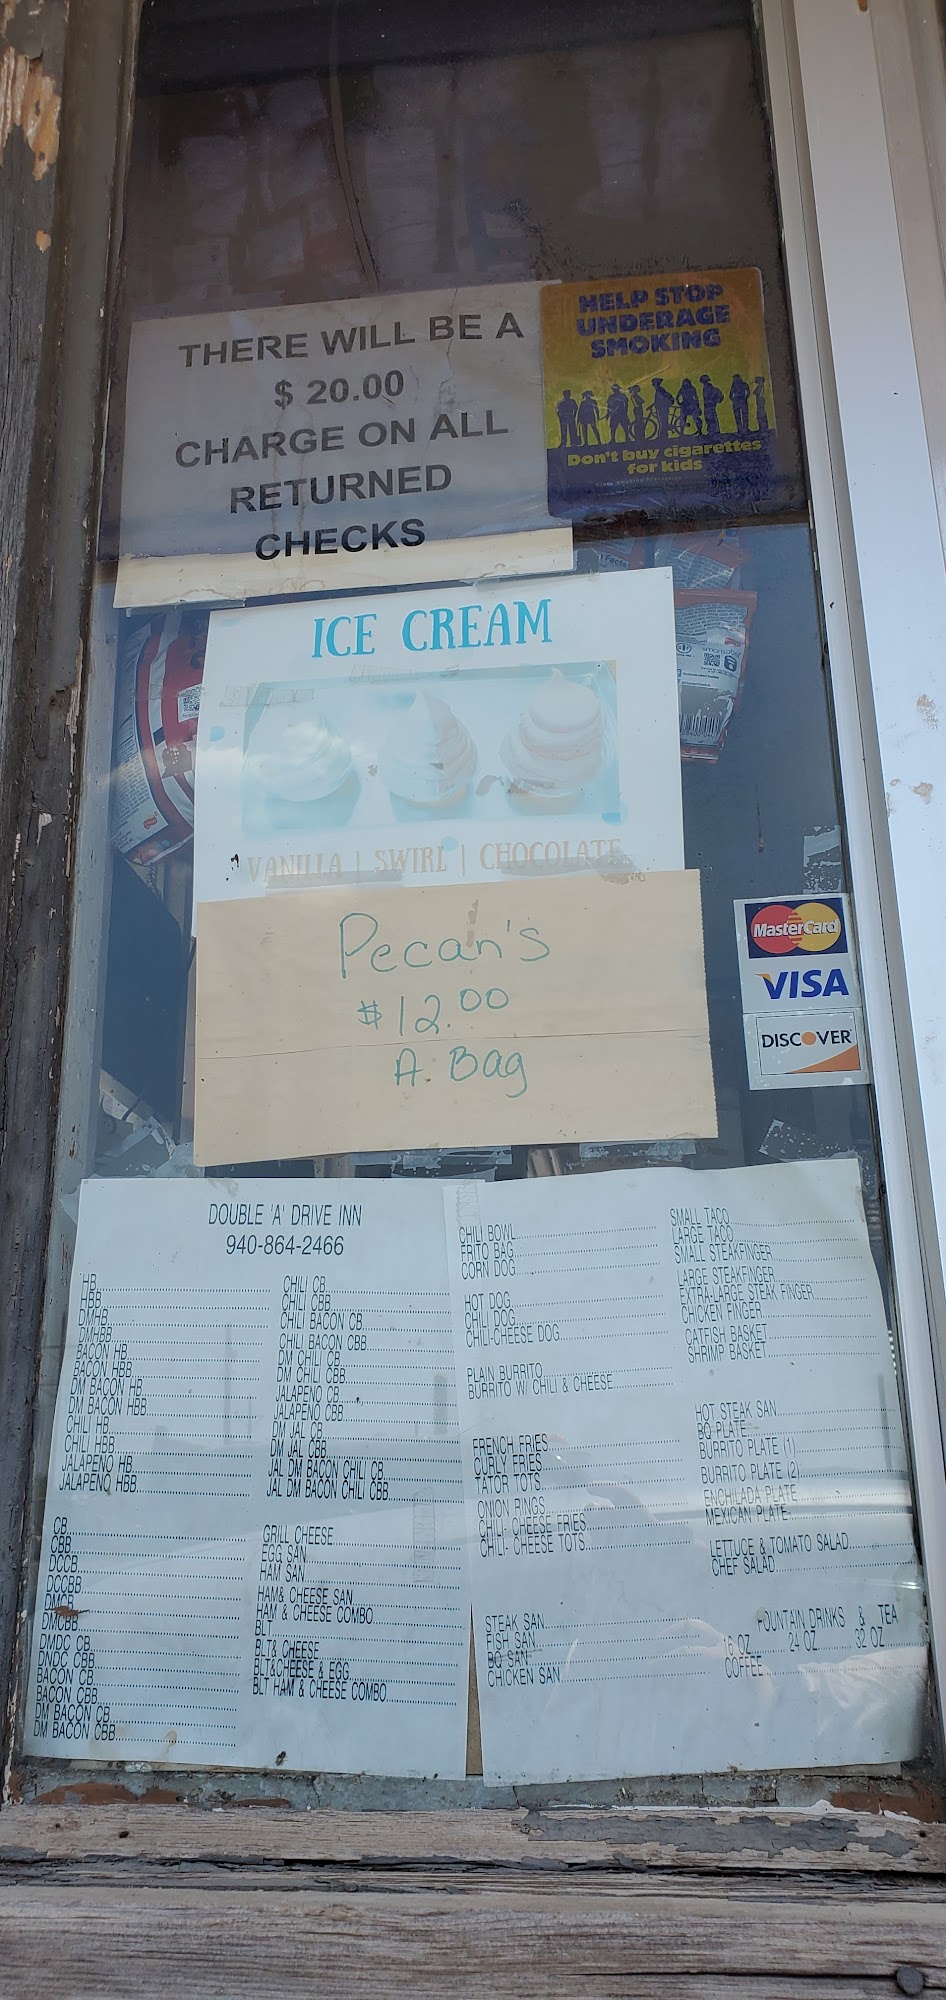 THERE WILL BE A
$ 20.00
CHARGE ON ALL
RETURNED
CHECKS
HELP STOP
UNDERAGE
SMOKING
Don't buy cigarettes
for kids
ICE CREAM
VANILLA | SWIRL | CHOCOLATE
Pecan's
$12.00
A Bag
MasterCard
VISA
DISCOVER
DOUBLE 'A' DRIVE INN
940-864-2466
HB
HBB
DMHB
DMHBB
BACON HB
BACON HBB
DM BACON HB
DM BACON HBB
CHILI HB
CHILI HBB
JALAPENO HB
JALAPENO HBB
CB
CBB
DCCB
DCCBB
DMCB
DMCBB
DMDC CB
DNDC CBB
BACON CB
BACON CBB
DM BACON CB
DM BACON CBB
CHILI CB
CHILI CBB
CHILI BACON CB
CHILI BACON CBB
DM CHILI CB
DM CHILI CBB
JALAPENO CB
JALAPENO CBB
DM JAL CB
DM JAL CBB
JAL DM BACON CHILI CB
JAL DM BACON CHILI CBB
GRILL CHEESE
EGG SAN
HAM SAN
HAM& CHEESE SAN
HAM & CHEESE COMBO
BLT
BLT& CHEESE
BLT&CHEESE & EGG
BLT HAM & CHEESE COMBO
CHILI BOWL
FRITO BAG
CORN DOG
HOT DOG
CHILI DOG
CHILI-CHEESE DOG
PLAIN BURRITO
BURRITO W/ CHILI & CHEESE
FRENCH FRIES
CURLY FRIES
TATOR TOTS
ONION RINGS
CHILI- CHEESE FRIES
CHILI- CHEESE TOTS
STEAK SAN
FISH SAN
BQ SAN
CHICKEN SAN
SMALL TACO
LARGE TACO
SMALL STEAKFINGER
LARGE STEAKFINGER
EXTRA-LARGE STEAK FINGER
CHICKEN FINGER
CATFISH BASKET
SHRIMP BASKET
HOT STEAK SAN
BQ PLATE
BURRITO PLATE (1)
BURRITO PLATE (2)
ENCHILADA PLATE
MEXICAN PLATE
LETTUCE & TOMATO SALAD
CHEF SALAD
FOUNTAIN DRINKS & TEA
16 OZ 24 OZ 32 OZ
COFFEE